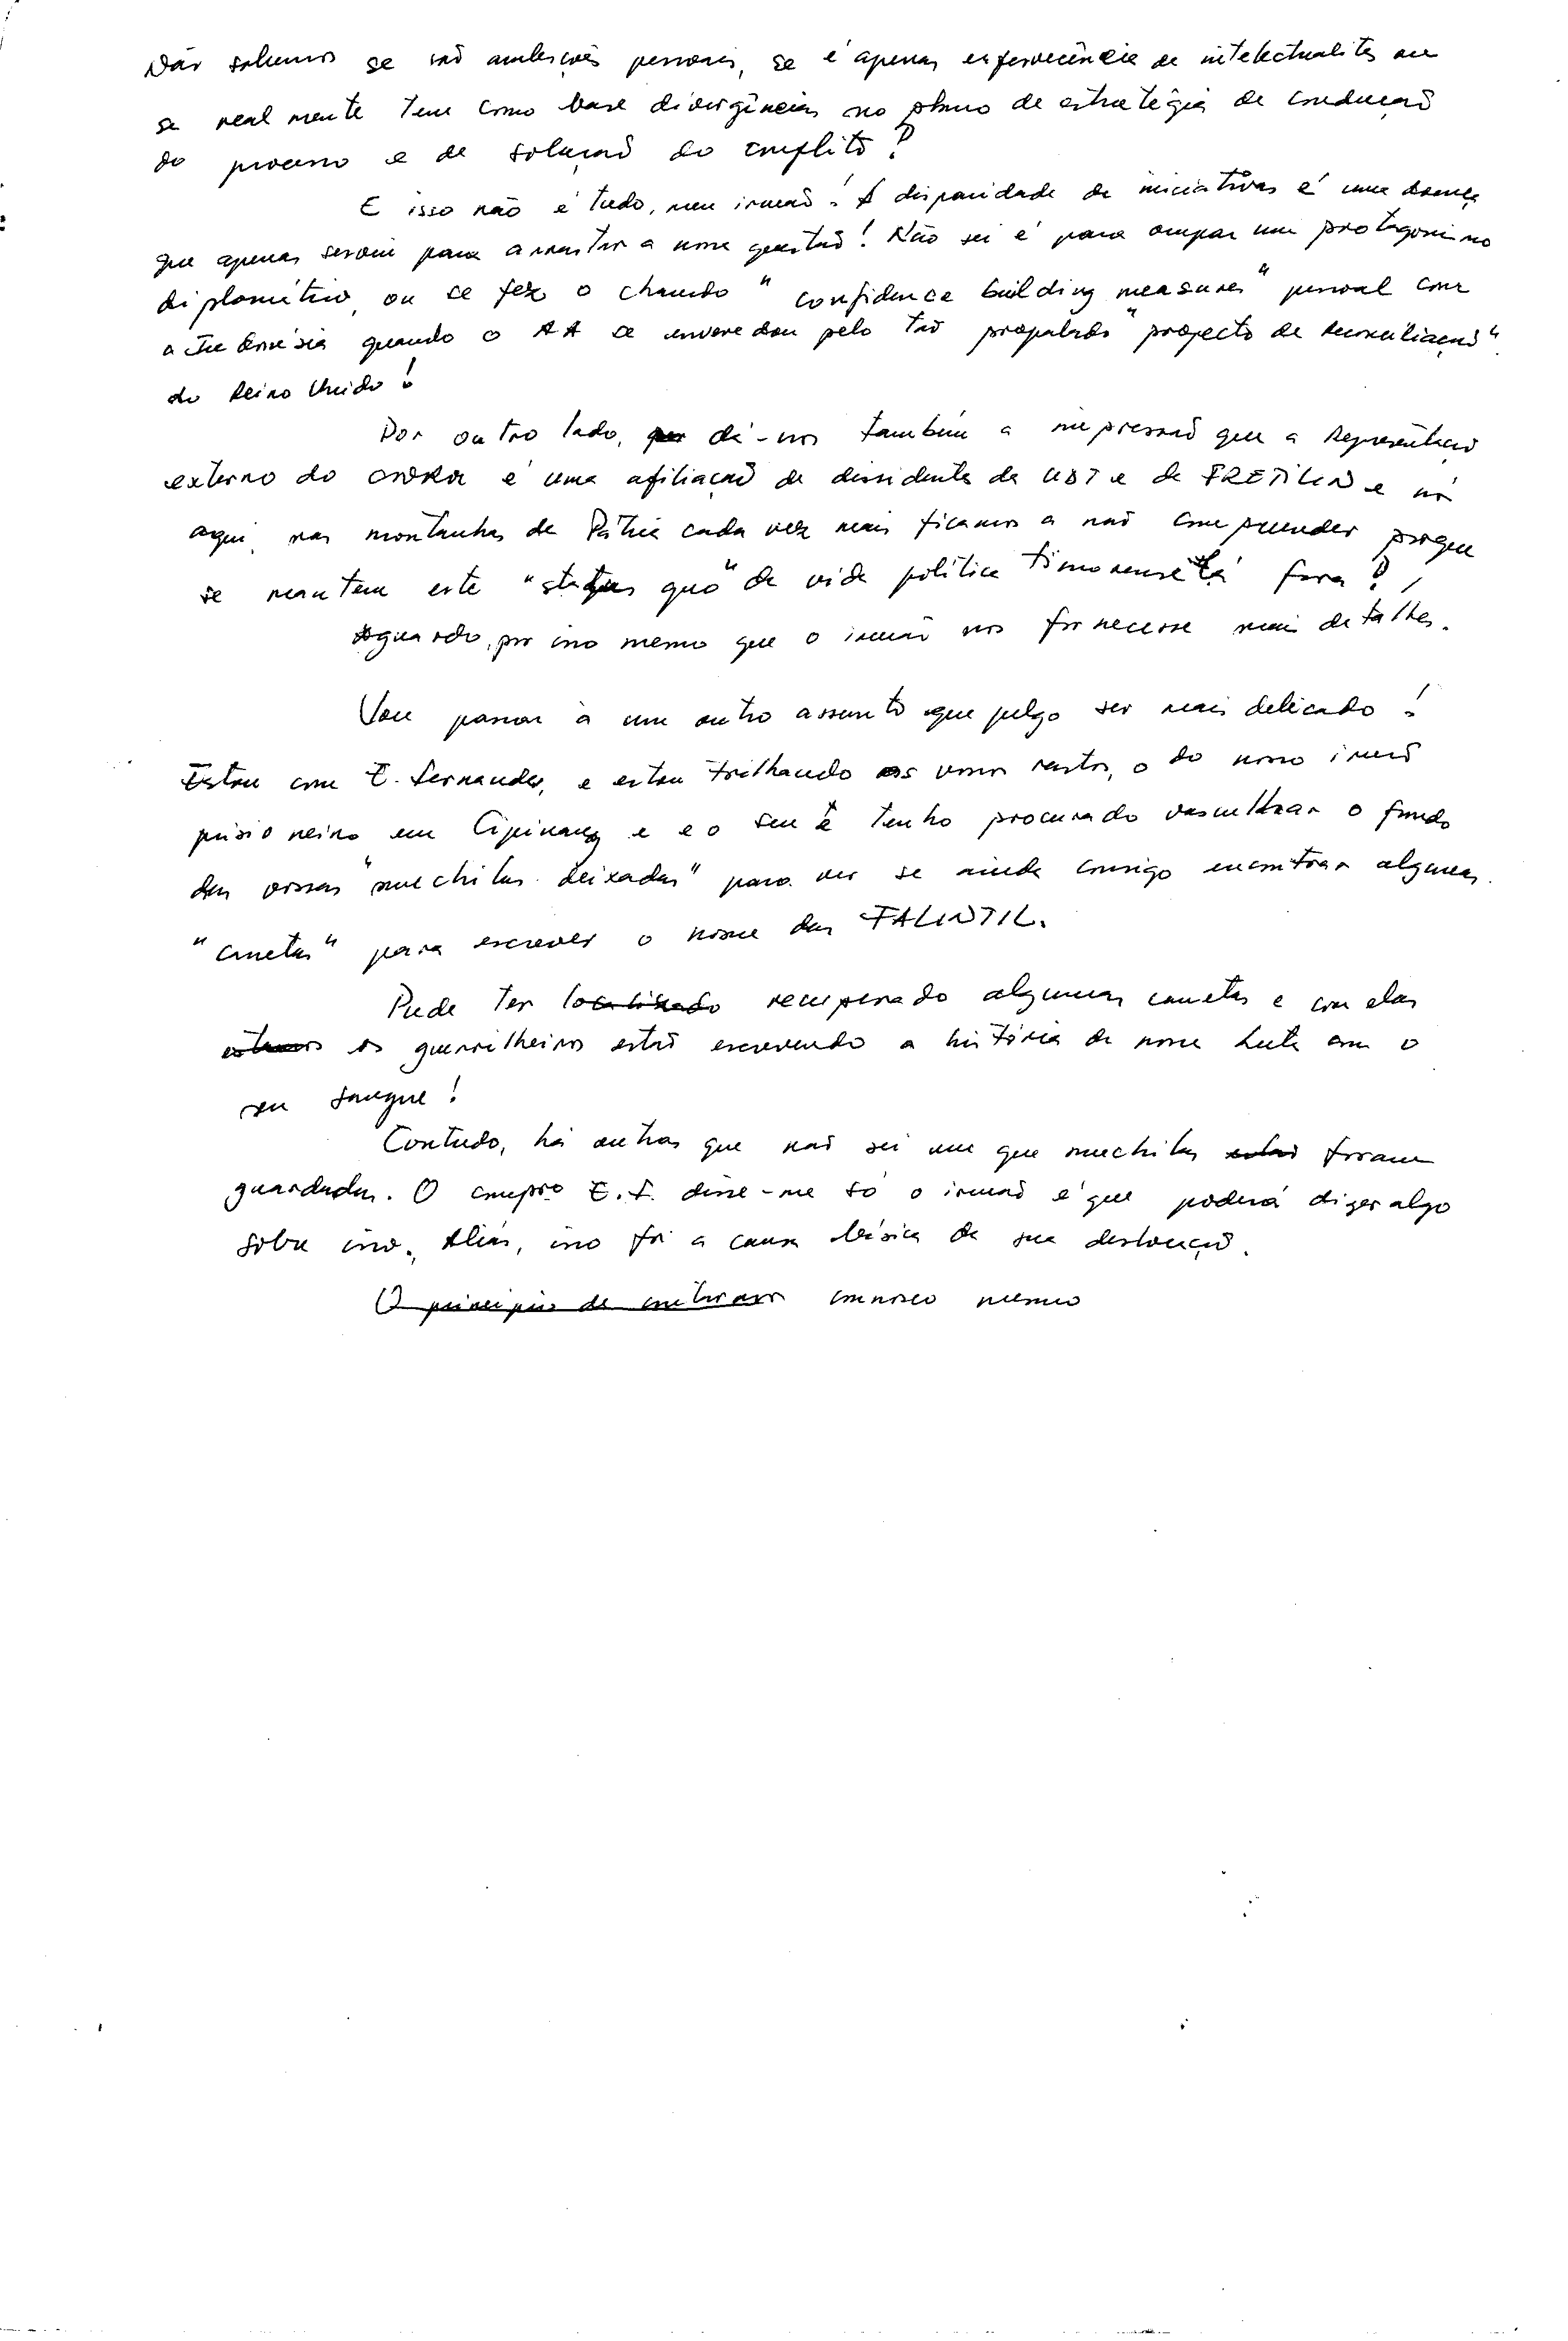 Não sabemos se são ambições pessoais, se é apenas efervecência de intelectualites ou
se realmente tem como base divergências no plano de estratégia de condução
do processo e de solução do conflito?
E isso não é tudo, meu irmão! A disparidade de iniciativas é uma doença
que apenas servem para arrastar a nossa questão! Não sei é para ocupar um protagonismo
diplomático, ou se fez o chamado "confidence building measures" pessoal com
a Indonésia quando o AA se enveredou pelo tão propalado "projecto de reconciliação"
do Reino Unido!
Por outro lado, dá-nos também a impressão que a Representação
externa do CNRM é uma afiliação de dissidentes da UDT e da FRETILIN e nós
aqui, nas montanhas da Pátria cada vez mais ficamos a não compreender porque
se mantem este "status quo" da vida política timorense lá fora?!
Aguardo, por isso mesmo que o irmão nos fornecesse mais detalhes.
Vou passar a um outro assunto que julgo ser mais delicado!
Estou com E. Fernandes, e estou trilhando os vossos rastos, o do nosso irmão
prisioneiro em Cipinang e o seu e tenho procurado vasculhar o fundo
das vossas "mochilas deixadas" para ver se ainda consigo encontrar algumas
"canetas" para escrever o nome das FALINTIL.
Pude ter localizado recuperado algumas canetas e com elas
estamos os guerrilheiros estão escrevendo a história da nossa Luta com o
seu sangue!
Contudo, há outras que não sei em que mochilas estão foram
guardadas. O compro E.F. disse-me só o irmão é que poderá dizer algo
sobre isso. Aliás, isso foi a causa básica da sua deslocação.
O princípio de contarmos connosco mesmo